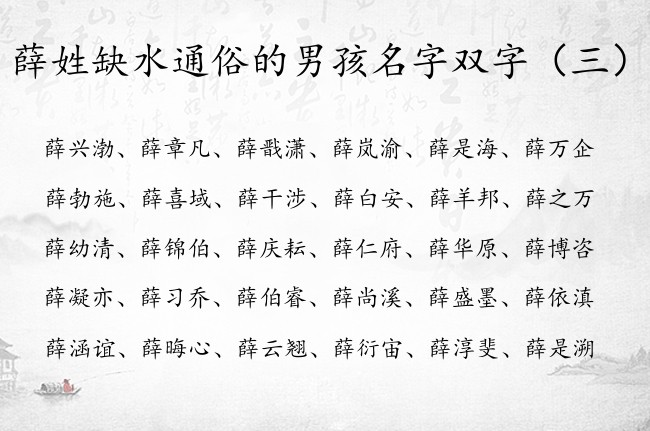 薛姓缺水通俗的男孩名字双字（三）
薛兴渤、薛章凡、薛戬潇、薛岚渝、薛是海、薛万企
薛勃施、薛喜域、薛干涉、薛白安、薛羊邦、薛之万
薛幼清、薛锦伯、薛庆耘、薛仁府、薛华原、薛博咨
薛凝亦、薛习乔、薛伯睿、薛尚溪、薛盛墨、薛依滇
薛涵谊、薛晦心、薛云翘、薛衍宙、薛淳斐、薛是溯